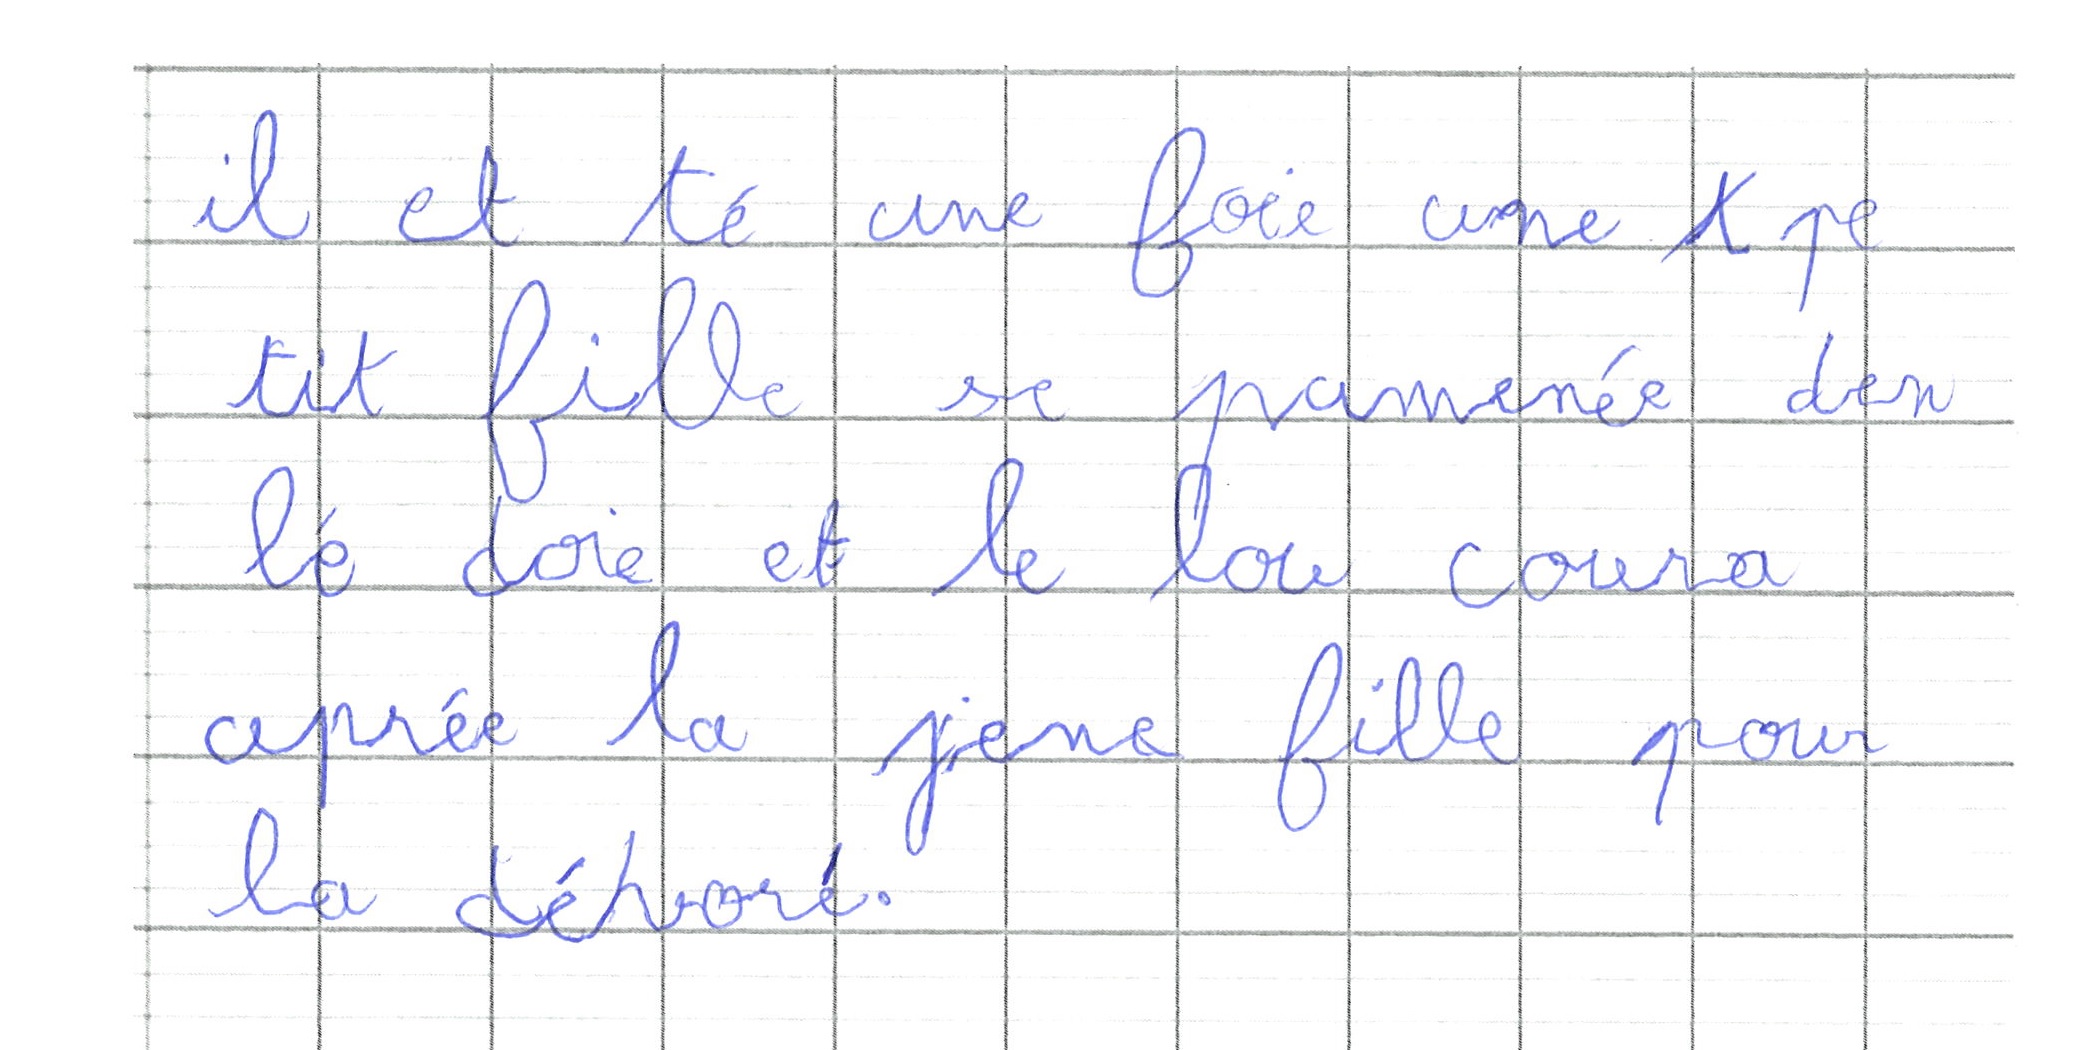 il et té une foie une pe
tit fille se pamenée den
lé doie et le lou coura
aprée la jene fille pour
la dévoré.